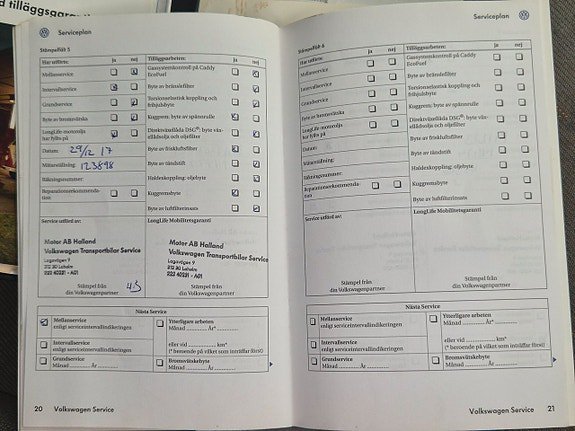 d tilläggsgara
Serviceplan
Stämpelfält 5
Har utförts:
ja
nej
Mellanservice
Intervallservice
Grundservice
Byte av bromsvätska
LongLife motorolja
har fyllts på
Datum:
29/12 17
Mätarställning:
123898
Räkningsnummer:
Reparationsrekommenda-
tion:
Tilläggsarbeten:
ja
nej
Gassystemkontroll på Caddy
EcoFuel
Byte av bränslefilter
Torsionselastisk koppling och
frihjulsbyte
Kuggrem; byte av spännrulle
Direktväxellåda DSG®: byte väx-
ellådsolja och oljefilter
Byte av friskluftsfilter
Byte av tändstift
Haldexkoppling: oljebyte
Kuggremsbyte
Byte av luftfilterinsats
Service utförd av:
LongLife Mobilitetsgaranti
Motor AB Halland
Volkswagen Transportbilar Service
Lagavägen 9
312 30 Laholm
222 40231 - A01
Stämpel från
din Volkswagenpartner
Motor AB Halland
Volkswagen Transportbilar Service
Lagavägen 9
312 30 Laholm
222 40231 - A01
Stämpel från
din Volkswagenpartner
Nästa Service
Mellanservice
enligt serviceintervallindikeringen
Intervallservice
enligt serviceintervallindikeringen
Grundservice
Månad ........... År ...........
Ytterligare arbeten
Månad ........... År* ...........
eller vid ........... km*
(* beroende på vilket som inträffar först)
Bromsvätskebyte
Månad ........... År ...........
20 Volkswagen Service
Serviceplan
Stämpelfält 6
Har utförts:
ja
nej
Mellanservice
Intervallservice
Grundservice
Byte av bromsvätska
LongLife motorolja
har fyllts på
Datum:
Mätarställning:
Räkningsnummer:
Reparationsrekommenda-
tion:
Tilläggsarbeten:
ja
nej
Gassystemkontroll på Caddy
EcoFuel
Byte av bränslefilter
Torsionselastisk koppling och
frihjulsbyte
Kuggrem; byte av spännrulle
Direktväxellåda DSG®: byte väx-
ellådsolja och oljefilter
Byte av friskluftsfilter
Byte av tändstift
Haldexkoppling: oljebyte
Kuggremsbyte
Byte av luftfilterinsats
Service utförd av:
LongLife Mobilitetsgaranti
Stämpel från
din Volkswagenpartner
Stämpel från
din Volkswagenpartner
Nästa Service
Mellanservice
enligt serviceintervallindikeringen
Intervallservice
enligt serviceintervallindikeringen
Grundservice
Månad ........... År ...........
Ytterligare arbeten
Månad ........... År* ...........
eller vid ........... km*
(* beroende på vilket som inträffar först)
Bromsvätskebyte
Månad ........... År ...........
Volkswagen Service 21